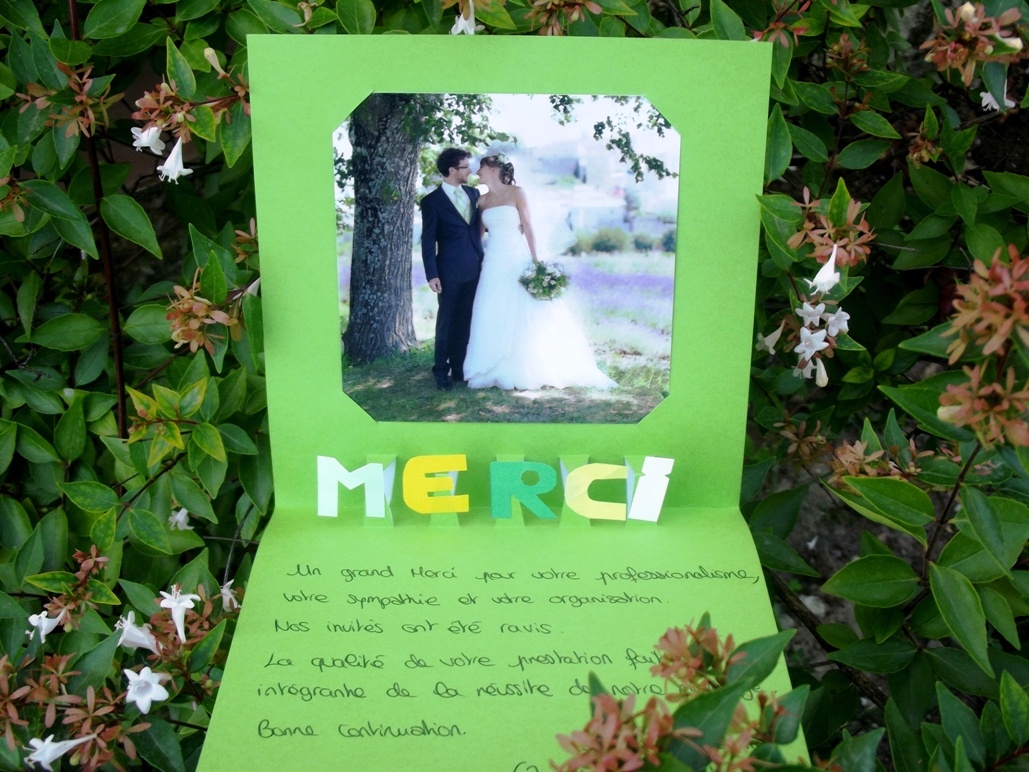 MERCi
Un grand Merci pour votre professionalisme,
votre sympathie et votre organisation.
Nos invités ont été ravis.
La qualité de votre prestation fait
intégrante de la réussite de notre
Bonne Continuation.